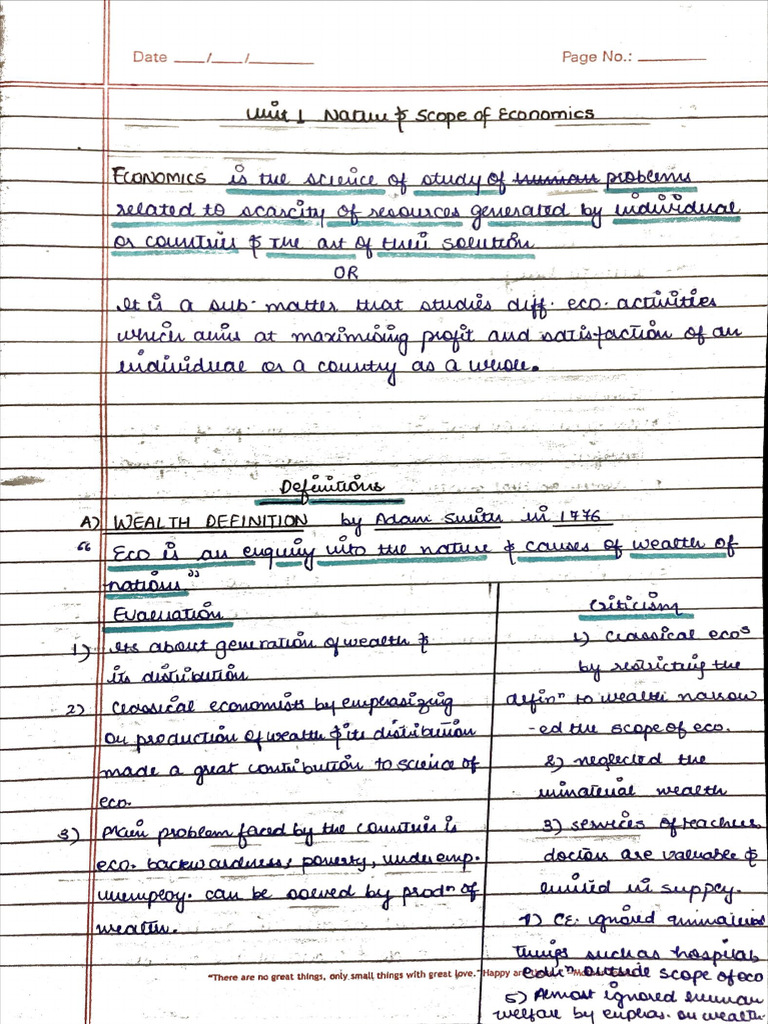 Date ___/___/______ Page No.: ______
Unit 1 Nature & Scope of Economics
ECONOMICS is the science of study of human problems
related to scarcity of resources generated by individual
or countries & the art of their solution
OR
It is a sub-matter that studies diff. eco. activities
which aims at maximising profit and satisfaction of an
individual or a country as a whole.
Definitions
A) WEALTH DEFINITION by Adam Smith in 1776
“ Eco is an enquiry into the nature & causes of wealth of
nations ”
Evaluation
1) Its about generation of wealth &
its distribution
2) Classical economists by emphasizing
on production of wealth & its distribution
made a great contribution to science of
eco.
3) Main problem faced by the countries is
eco. backwardness, poverty, underemp.
unemploy. can be solved by prodⁿ of
wealth.
Criticism
1) Classical ecoˢ
by restricting the
definⁿ to wealth narrow
-ed the scope of eco.
2) neglected the
immaterial wealth
3) services of teachers
doctors are valuable &
limited in supply.
4) CE. ignored
things such as hospital
educⁿ outside scope of eco
"There are no great things, only small things with great love." Happy
5) Almost ignored human
welfare by emphas. on wealth